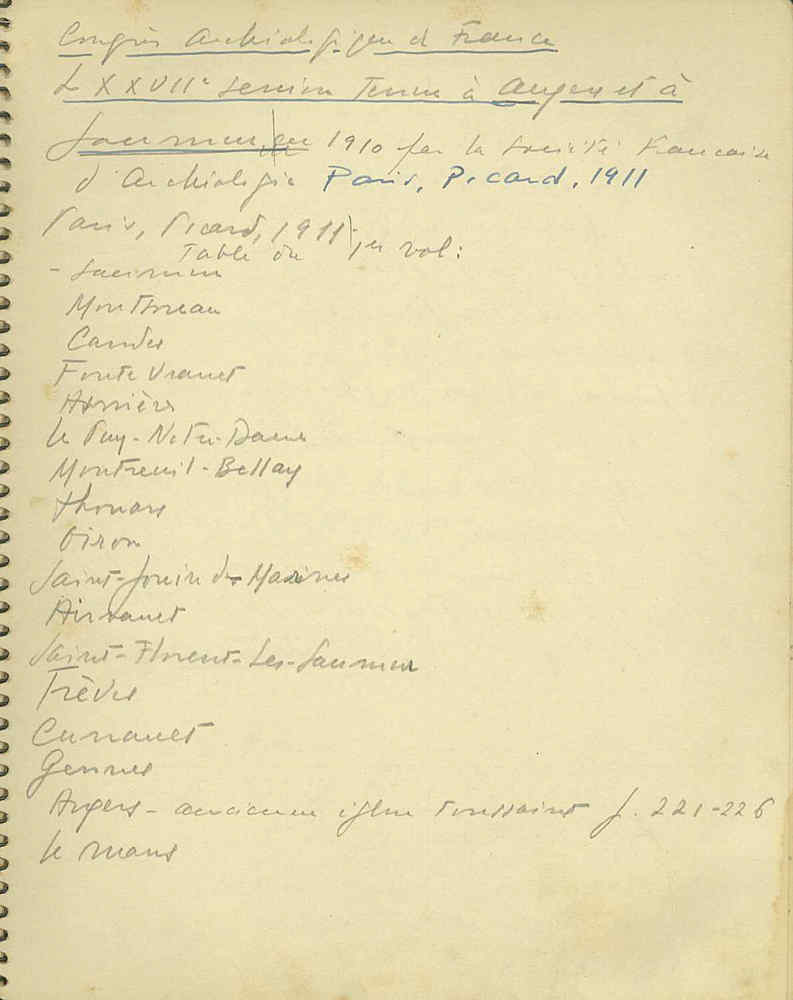 Congrès Archéologique de France
LXXVIIe session Tenue à Angers et à
Saumur en 1910 par la Société Francaise
d'Archéologie Paris, Picard, 1911
Paris, Picard, 1911
Table du 1er vol:
- Saumur
Montsoreau
Candes
Fontevrault
Asnières
Le Puy-Notre-Dame
Montreuil-Bellay
Thouars
Oiron
Saint-Jouin de Marnes
Airvault
Saint-Florent-Les-Saumur
Trèves
Cunault
Gennes
Angers - ancienne église Toussaint p. 221-226
Le Mans